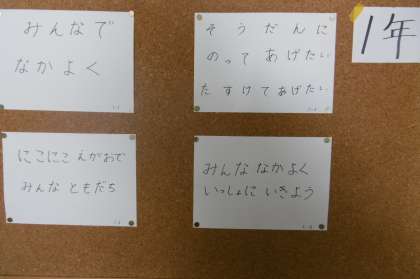 みんなで
なかよく
そうだんに
のって あげたい
たすけてあげたい
1年
にこにこ えがおで
みんな ともだち
みんな なかよく
いっしょに いきよう